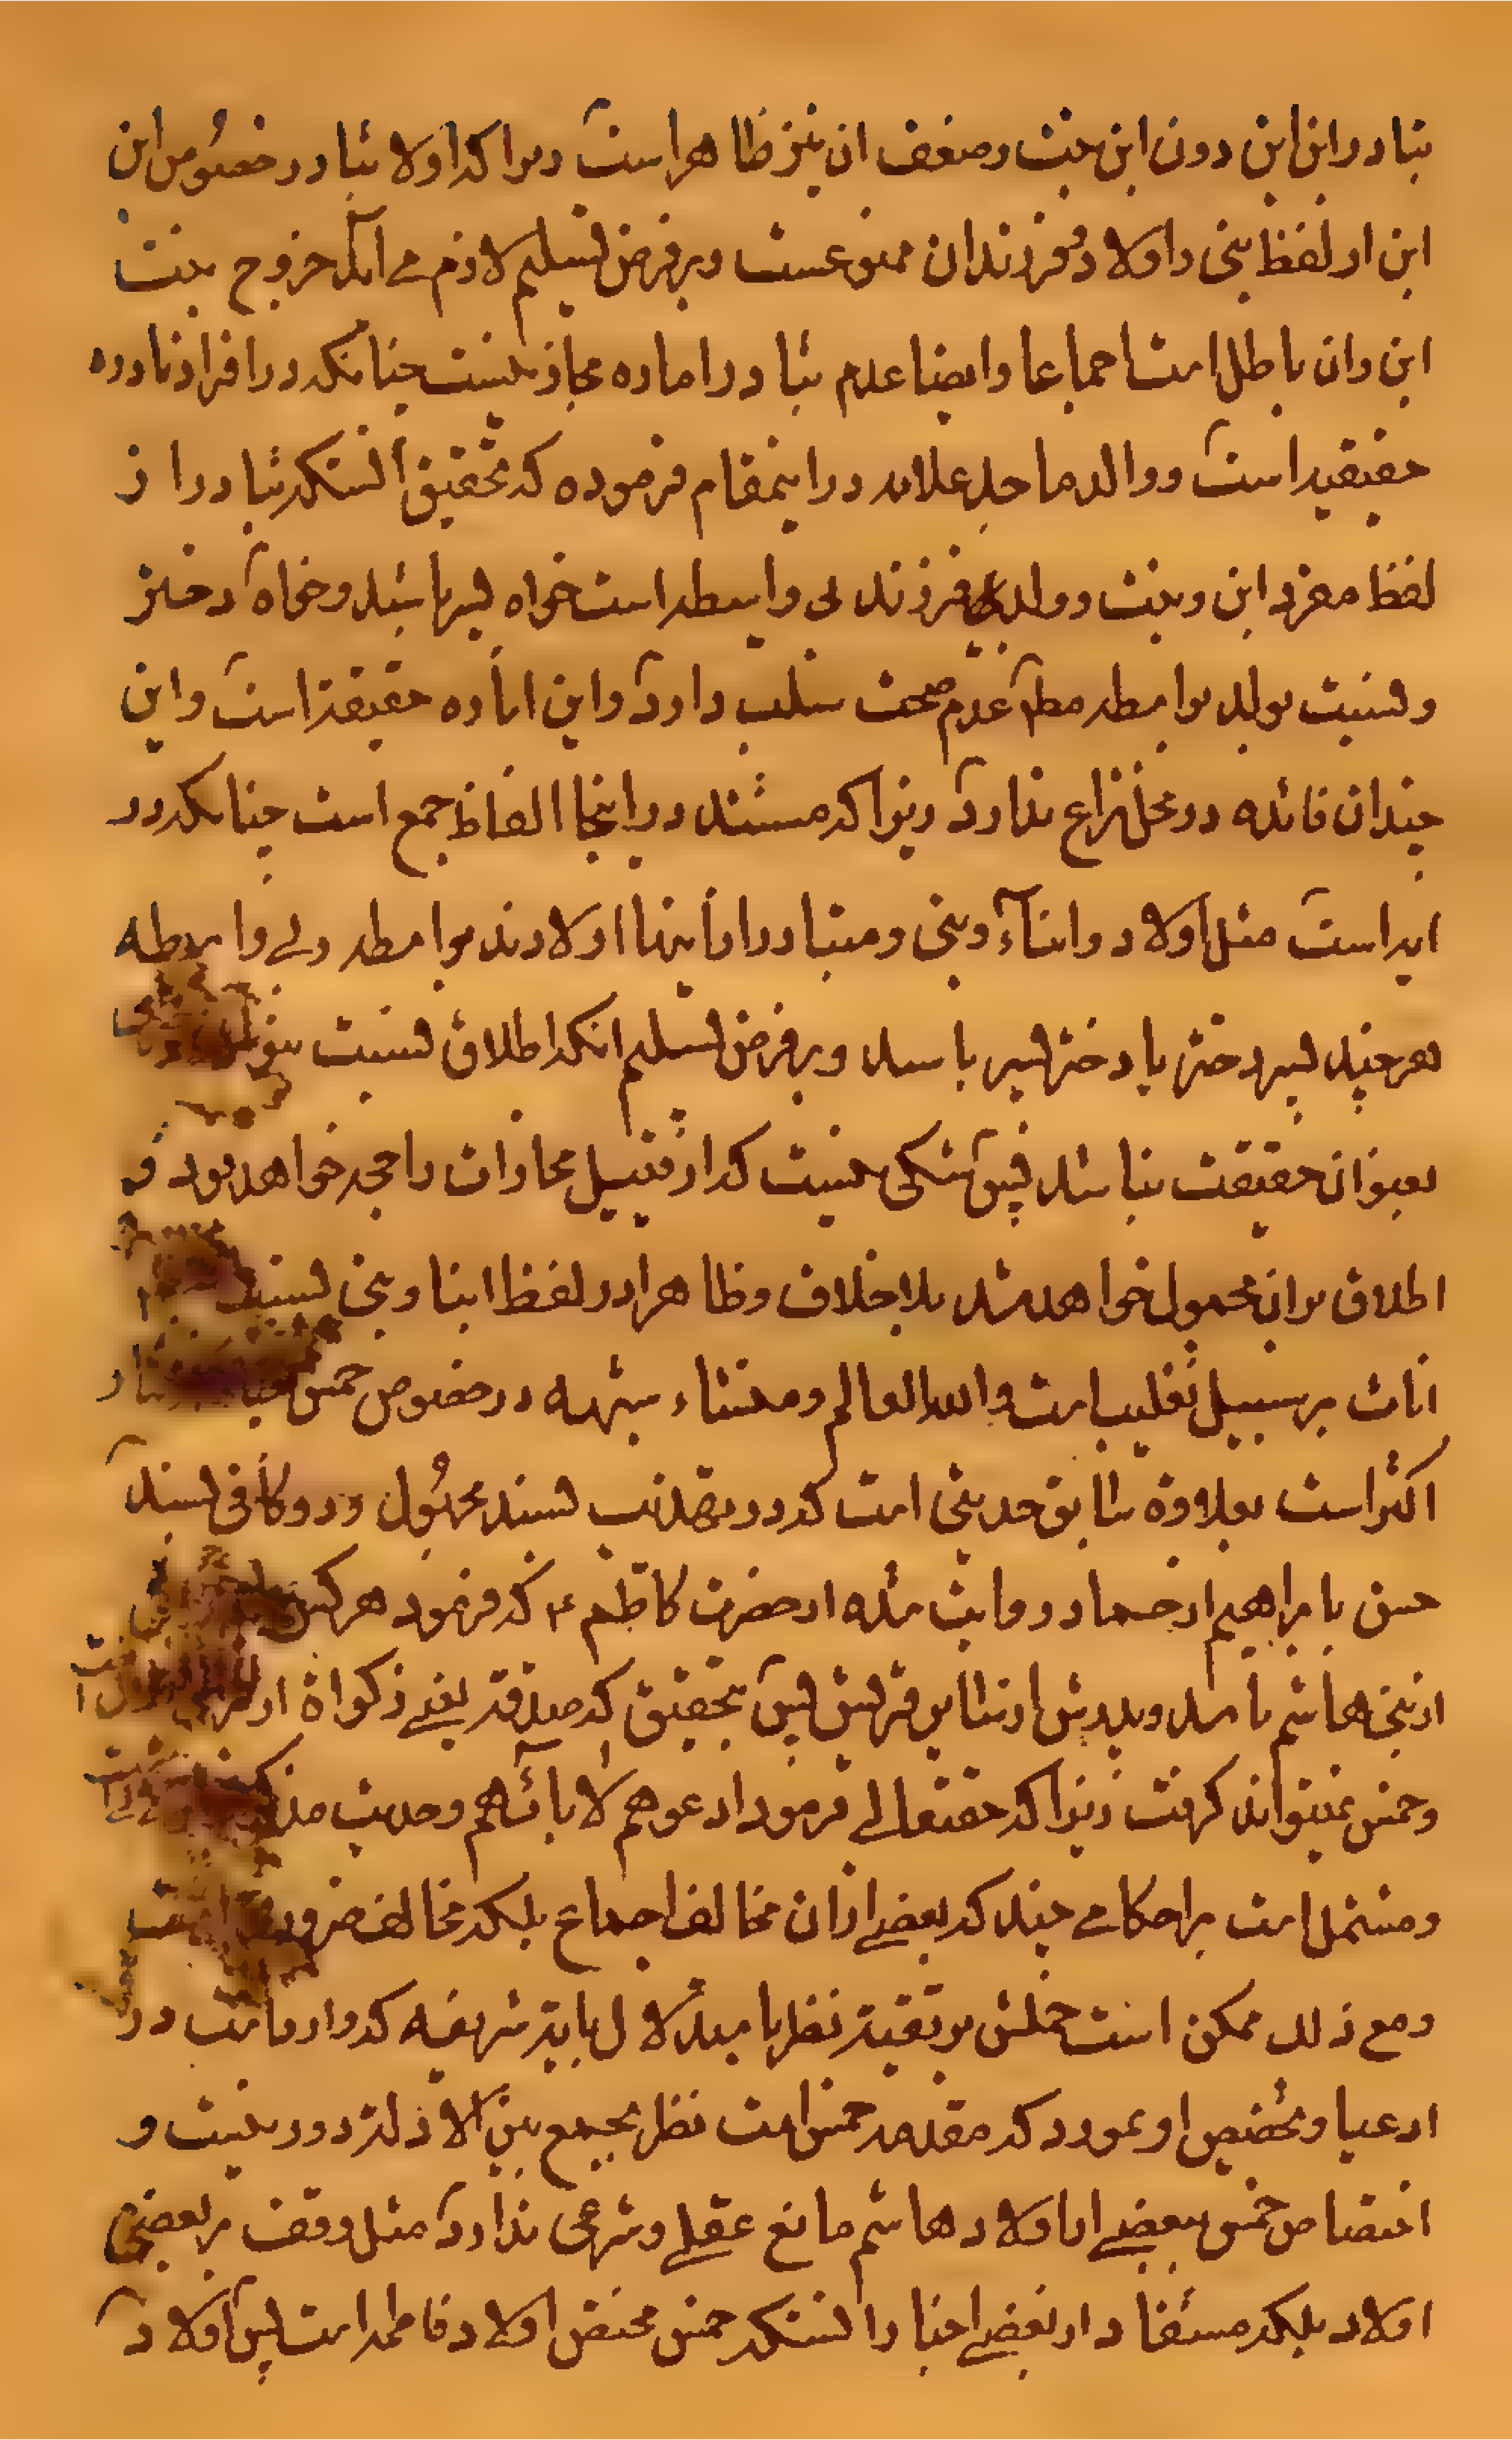 تبادر ابن ابن دون ابن بنت و ضعف ان نیز ظاهر است زیرا که اولا تبادر خصوص ابن
ابن از لفظ بنی و اولاد و فرزندان ممنوعست و بر فرض تسلیم لازم می اید خروج بنت
ابن و ان باطل است اجماعا و ایضا عدم تبادر اماره مجاز نیست چنانکه در افراد نادره
حقیقیه است و والد ماجد علامه در اینمقام فرموده که تحقیق انستکه تبادر از
لفظ مفرد ابن و بنت و ولد فرزند بی واسطه است خواه پسر باشد و خواه دختر
و نسبت بولد بواسطه مطلقا عدم صحت سلب دارد و این اماره حقیقة است و این
چندان فائده در محل نزاع ندارد زیرا که مستند در اینجا الفاظ جمع است چنانکه در
ایه است مثل اولاد و ابناء و بنی و متبادر از اینها اولادند بواسطه و بی واسطه
هر چند پسر دختر یا دختر پسر باشد و بر فرض تسلیم انکه اطلاق نسبت
بعنوان حقیقت نباشد پس شکی نیست که از قبیل مجازات راجحه خواهد بود و
اطلاق بر ان محمول خواهد شد بلا خلاف و ظاهرا در لفظ ابنا و بنی نسبت
اناث بر سبیل تغلیب است والله العالم و منشاء شبهه در خصوص خمس
اکثر است بعلاوه سابق حدیثی است که در تهذیب بسند مجهول و در کافی بسند
حسن بابراهیم از حماد روایت شده از حضرت کاظم ع که فرمود هر کس
از بنی هاشم باشد و پدرش از سایر قریش پس بتحقیق که صدقه یعنی زکواة از
و خمس نمیتواند گرفت زیرا که حقتعالی فرمود ادعوهم لابائهم و حدیث
و مشتمل است بر احکامی چند که بعضی از ان مخالف اجماع بلکه مخالف
و مع ذلک ممکن است حملش بر تقیه نظر باستدلال بایه شریفه که وارد است در
ادعیا و تخصیص او بمورد که مقدمه خمس است نظر بجمع بین الادلة دور نیست و
اختصاص خمس ببعضی از اولاد هاشم مانع عقلی و شرعی ندارد مثل وقف بر بعضی
اولاد بلکه مستفاد از بعضی اخبار انستکه خمس مختص اولاد فاطمه است پس اولاد